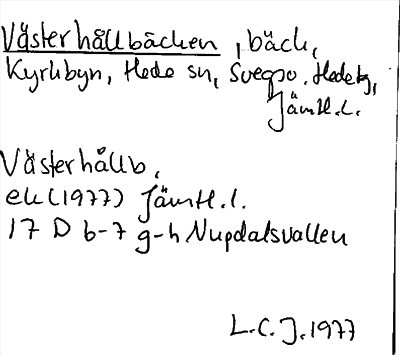 Västerhållbäcken, bäck,
Kyrkbyn, Hede sn, Svegso. Hedetg,
Jämtl.l.
Västerhållb.
ek (1977) Jämtl.l.
17 D 6-7 g-h Nupdalsvallen
L.C.J. 1977